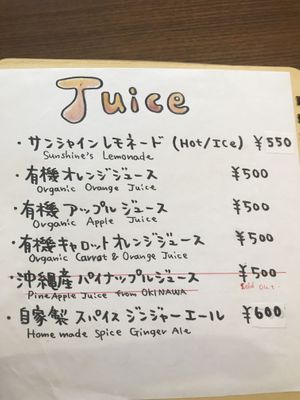 Juice
・サンシャインレモネード (Hot/Ice) ¥550
Sunshine's Lemonade
・有機オレンジジュース ¥500
Organic Orange Juice
・有機アップルジュース ¥500
Organic Apple Juice
・有機キャロットオレンジジュース ¥500
Organic Carrot & Orange Juice
・沖縄産パイナップルジュース ¥500
Pine Apple Juice from OKINAWA Sold Out
・自家製スパイスジンジャーエール ¥600
Home made Spice Ginger Ale